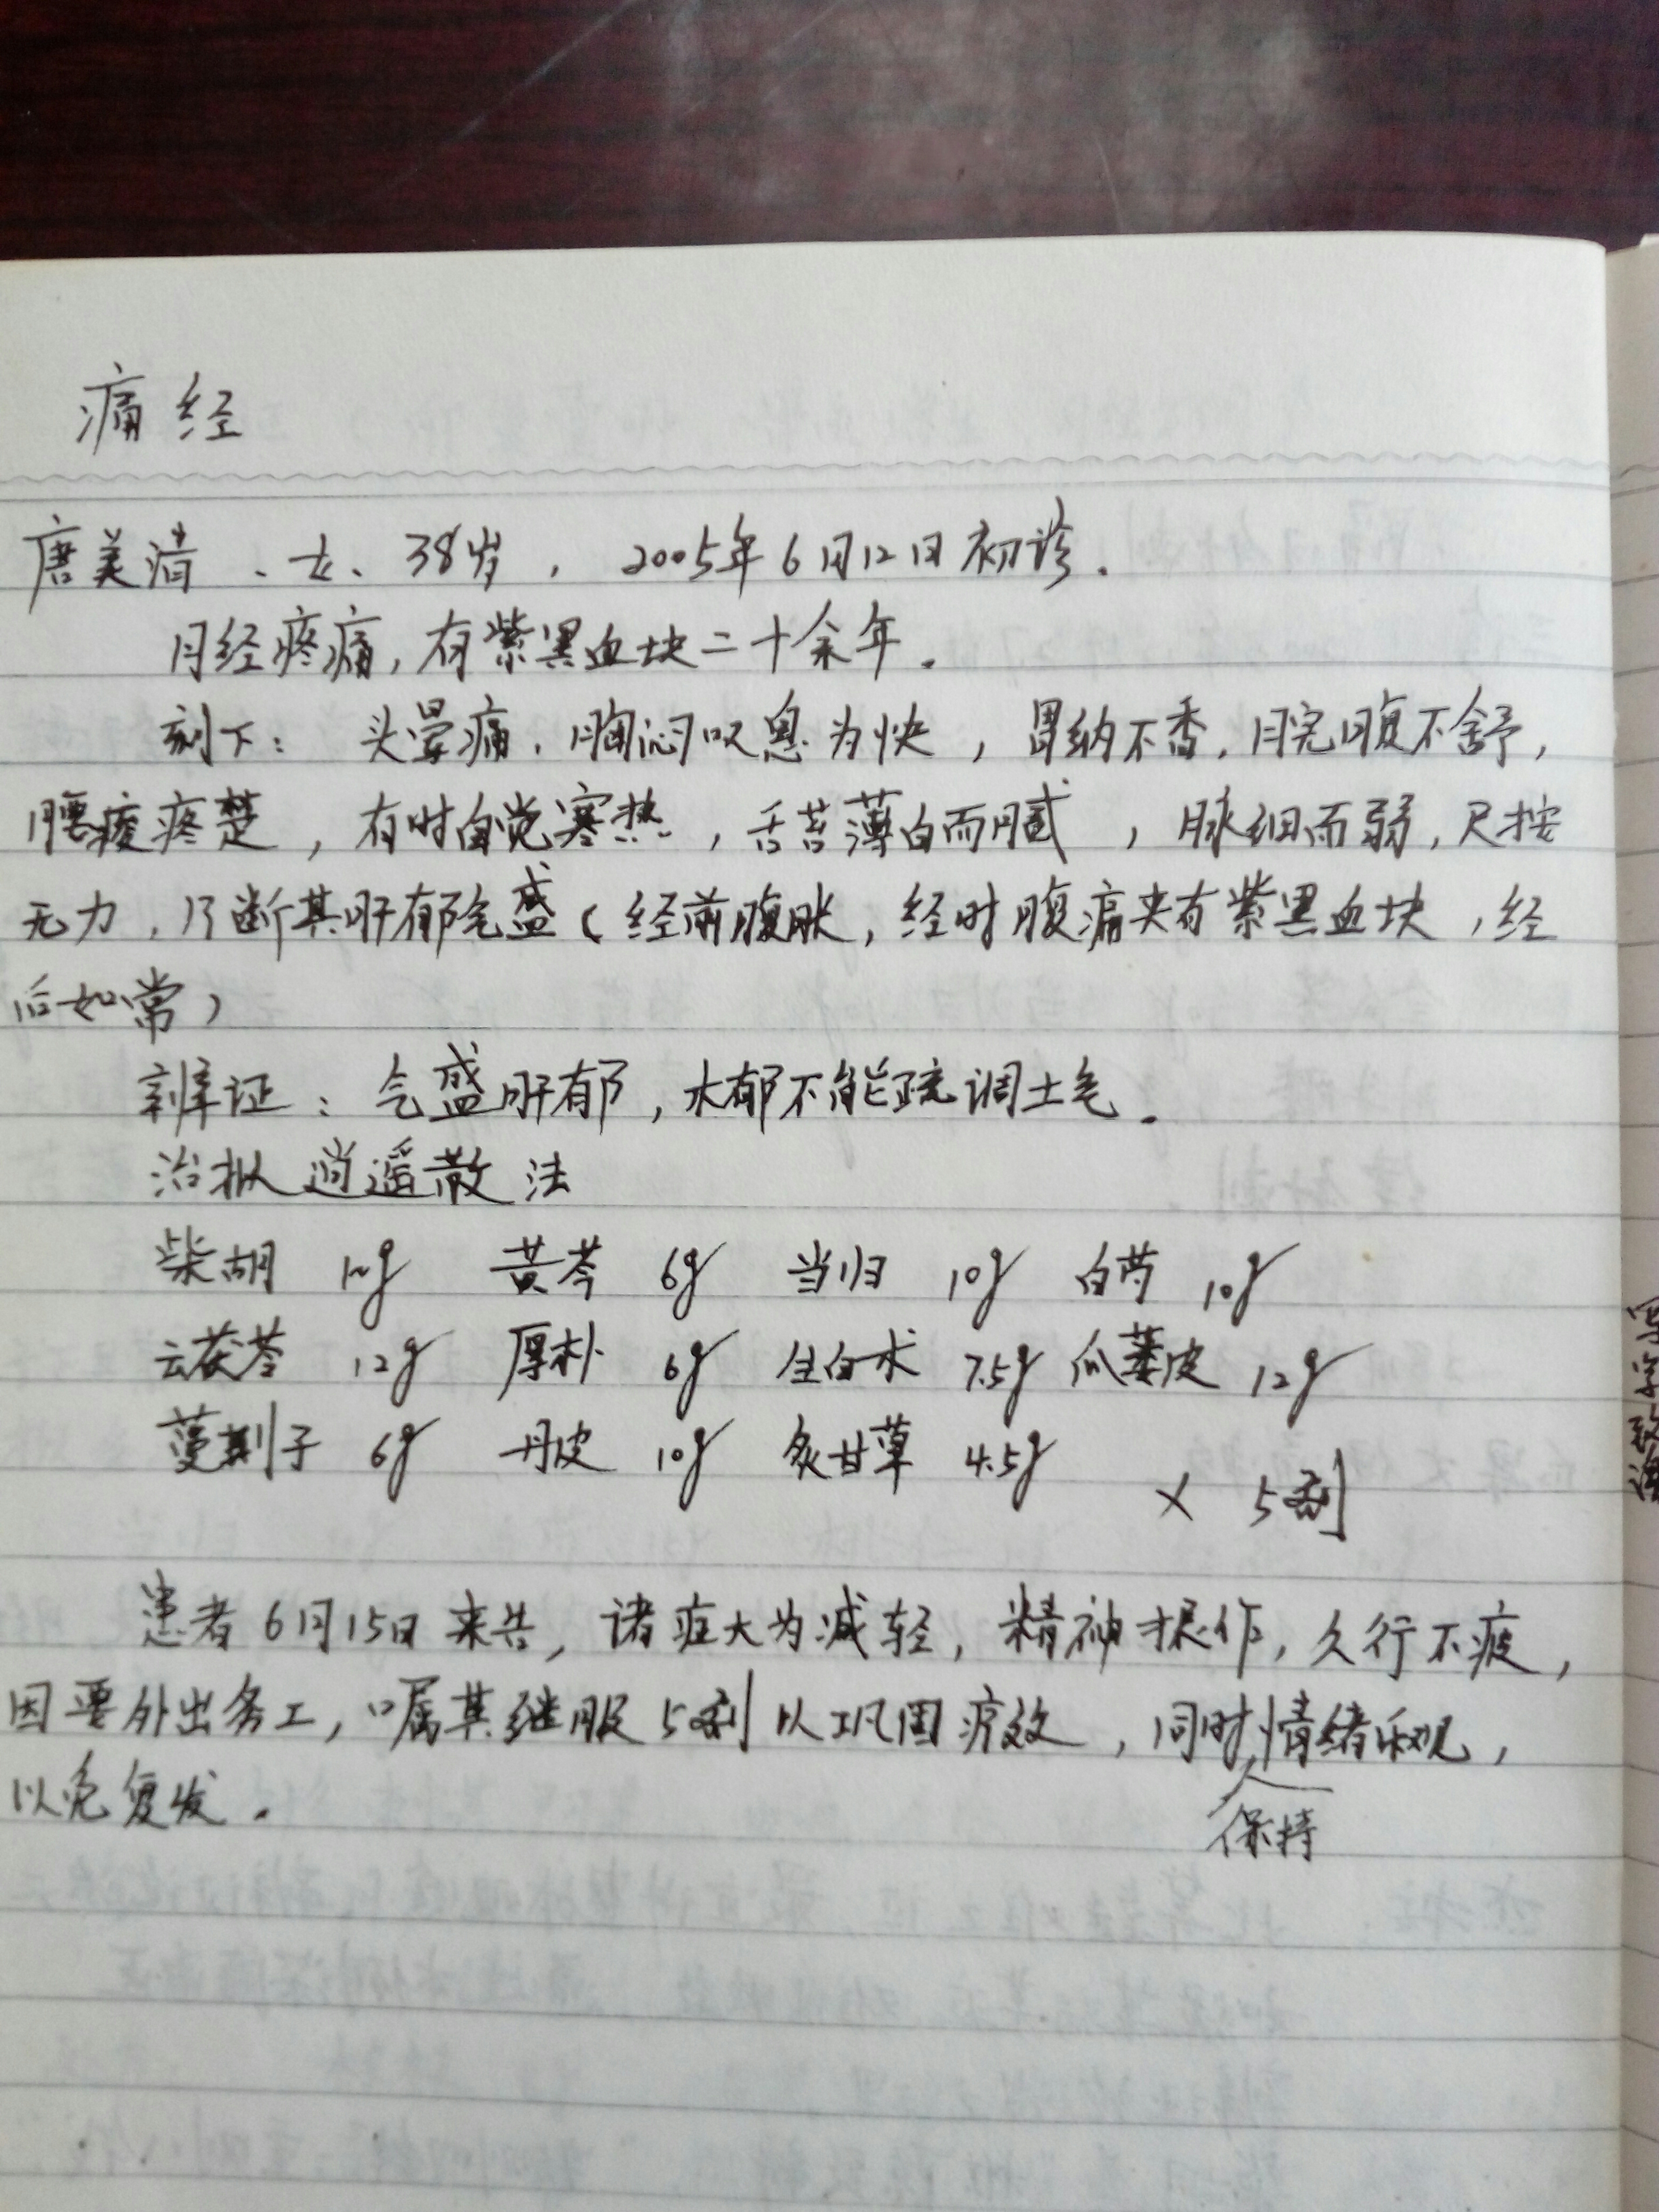 痛经
唐美清、女、38岁，2005年6月12日初诊.
月经疼痛,有紫黑血块二十余年.
刻下：头晕痛.胸闷叹息为快，胃纳不香,脘腹不舒,
腰酸疼楚，有时自觉寒热，舌苔薄白而腻，脉细而弱,尺按
无力,乃断其肝郁气盛(经前腹胀,经时腹痛夹有紫黑血块,经
后如常)
辨证：气盛肝郁,木郁不能疏调土气.
治拟逍遥散法
柴胡 10g 黄芩 6g 当归 10g 白芍 10g
云茯苓 12g 厚朴 6g 生白术 7.5g 瓜蒌皮 12g
蔓荆子 6g 丹皮 10g 炙甘草 4.5g
× 5剂
患者6月15日来告,诸症大为减轻,精神振作,久行不疲,
因要外出务工,嘱其继服5剂以巩固疗效,同时保持情绪乐观,
以免复发.